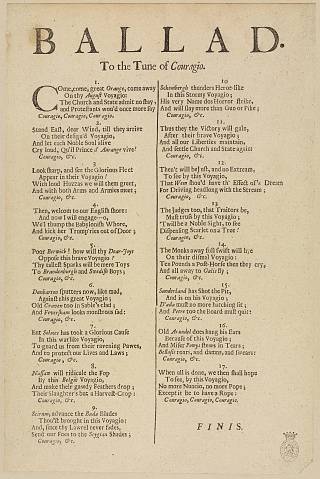 BALLAD.
To the Tune of Couragio.
1.
Come, come, great Orange, come away
On thy August Voyagio;
The Church and State admit no stay,
and Protestants wou'd once more say
Couragio, Couragio, Couragio.
2.
Stand East, dear Wind, till they arrive
On their design'd Voyagio,
And let each Noble Soul alive
Cry loud, Qu'il Prince d' Aurange vive!
Couragio, &c.
3
Look sharp, and see the Glorious Fleet
Appear in their Voyagio
With loud Huzzas we will them greet,
And with both Arms and Armies meet;
Couragio, &c.
4
Then, welcom to our English shore:
And now I will engage—o,
We'l thump the Babylonish Whore,
And kick her Trump'ries out of Door;
Couragio, &c.
5.
Poor Berwick! how will thy Dear-Joys
Oppose this brave Voyagio?
Thy tallest Sparks will be meer Toys
To Brandenburgh and Swedish Boys;
Couragio, &c.
6.
Dunbarton sputters now, like mad,
Against this great Voyagio;
Old Craven too in Sable's clad;
And Feversham looks monstrous sad:
Couragio, &c.
7.
But Solmes has took a Glorious Cause
In this warlike Voyagio,
To guard us from their ravening Pawes,
And to protect our Lives and Laws;
Couragio, &c.
8.
Nassau will ridicule the Fop
By this Belgio Voyagio,
And make their gawdy Feathers drop;
Their Slaughter's but a Harvest-Crop:
Couragio, &c.
9
advance the Blades
Thou'lt brought in this Voyagio;
And, since thy Lawrel never fades,
Send our Foes to the Stygian Shades;
Couragio, &c.
10
Schomberg thunders Heroe-like
In this Stormy Voyagio;
His very Name dos Horror strike,
And will slay more than Gun or Pike;
Couragio, &c.
11
Thus they the Victory will gain,
After their brave Voyagio;
And all our Liberties maintain,
And settle Church and State again
Couragio, &c.
12
Then't will be just, and no Extream,
To see by this Voyagio,
That West shou'd have th' Effect of's Dream
For Driving headlong with the Stream;
Couragio, &c.
13
The Judges too, that Traitors be,
Must truss by this Voyagio;
'Twill be a Noble Sight, to see
Dispensing Scarlet on a Tree:
Couragio, &c.
14
The Monks away full swift will hie
On their dismal Voyagio:
Ten Pounds a Post-Horse then they cry,
And all away to Galis fly;
Couragio, &c.
15.
Sunderland has Shot the Pit,
And is on his Voyagio;
D'ada must no more hatching sit;
And Petre too the Board must quit:
Couragio, &c.
16.
Old Arundel does hang his Ears
Because of this Voyagio;
And Mister Pempy stews in Tears;
Bellasis roars, and damns, and swears:
Couragio, &c.
17.
When all is done, we then shall hope
To see, by this Voyagio,
No more Nuncio, no more Pope;
Except it be to have a Rope:
Couragio, Couragio, Couragio.
FINIS.